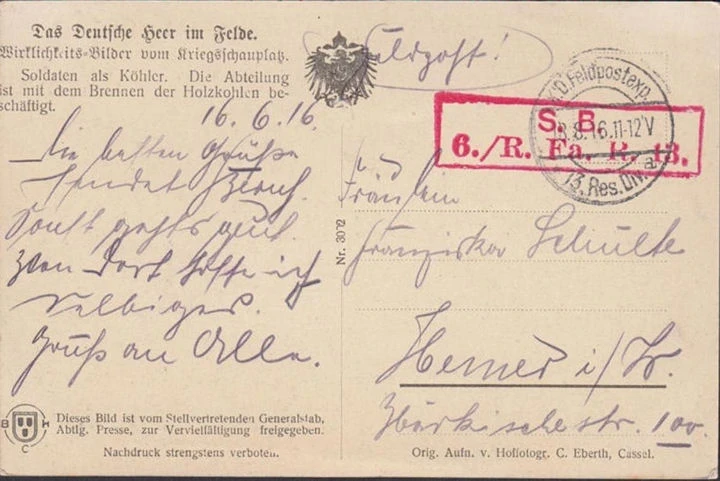 Das Deutsche Heer im Felde.
Wirklichkeits-Bilder vom Kriegsschauplatz.
Soldaten als Köhler. Die Abteilung
ist mit dem Brennen der Holzkohlen be-
schäftigt.
16.6.16
Die besten Grüße
sendet
Sonst gehts gut.
Von Dort hoffe ich
selbiges.
Gruß an Alle.
Feldpost!
K.D. Feldpostexp.
8.16.11-12V
3. Res. Div. a
S. B.
6./R. Fa. R. 13.
Fräulein
Franziska Schulte
Hemer i/W.
Märkischestr. 100.
Nr. 3002
B H
C
Dieses Bild ist vom Stellvertretenden Generalstab,
Abtlg. Presse, zur Vervielfältigung freigegeben.
Nachdruck strengstens verboten.
Orig. Aufn. v. Hoffotogr. C. Eberth, Cassel.